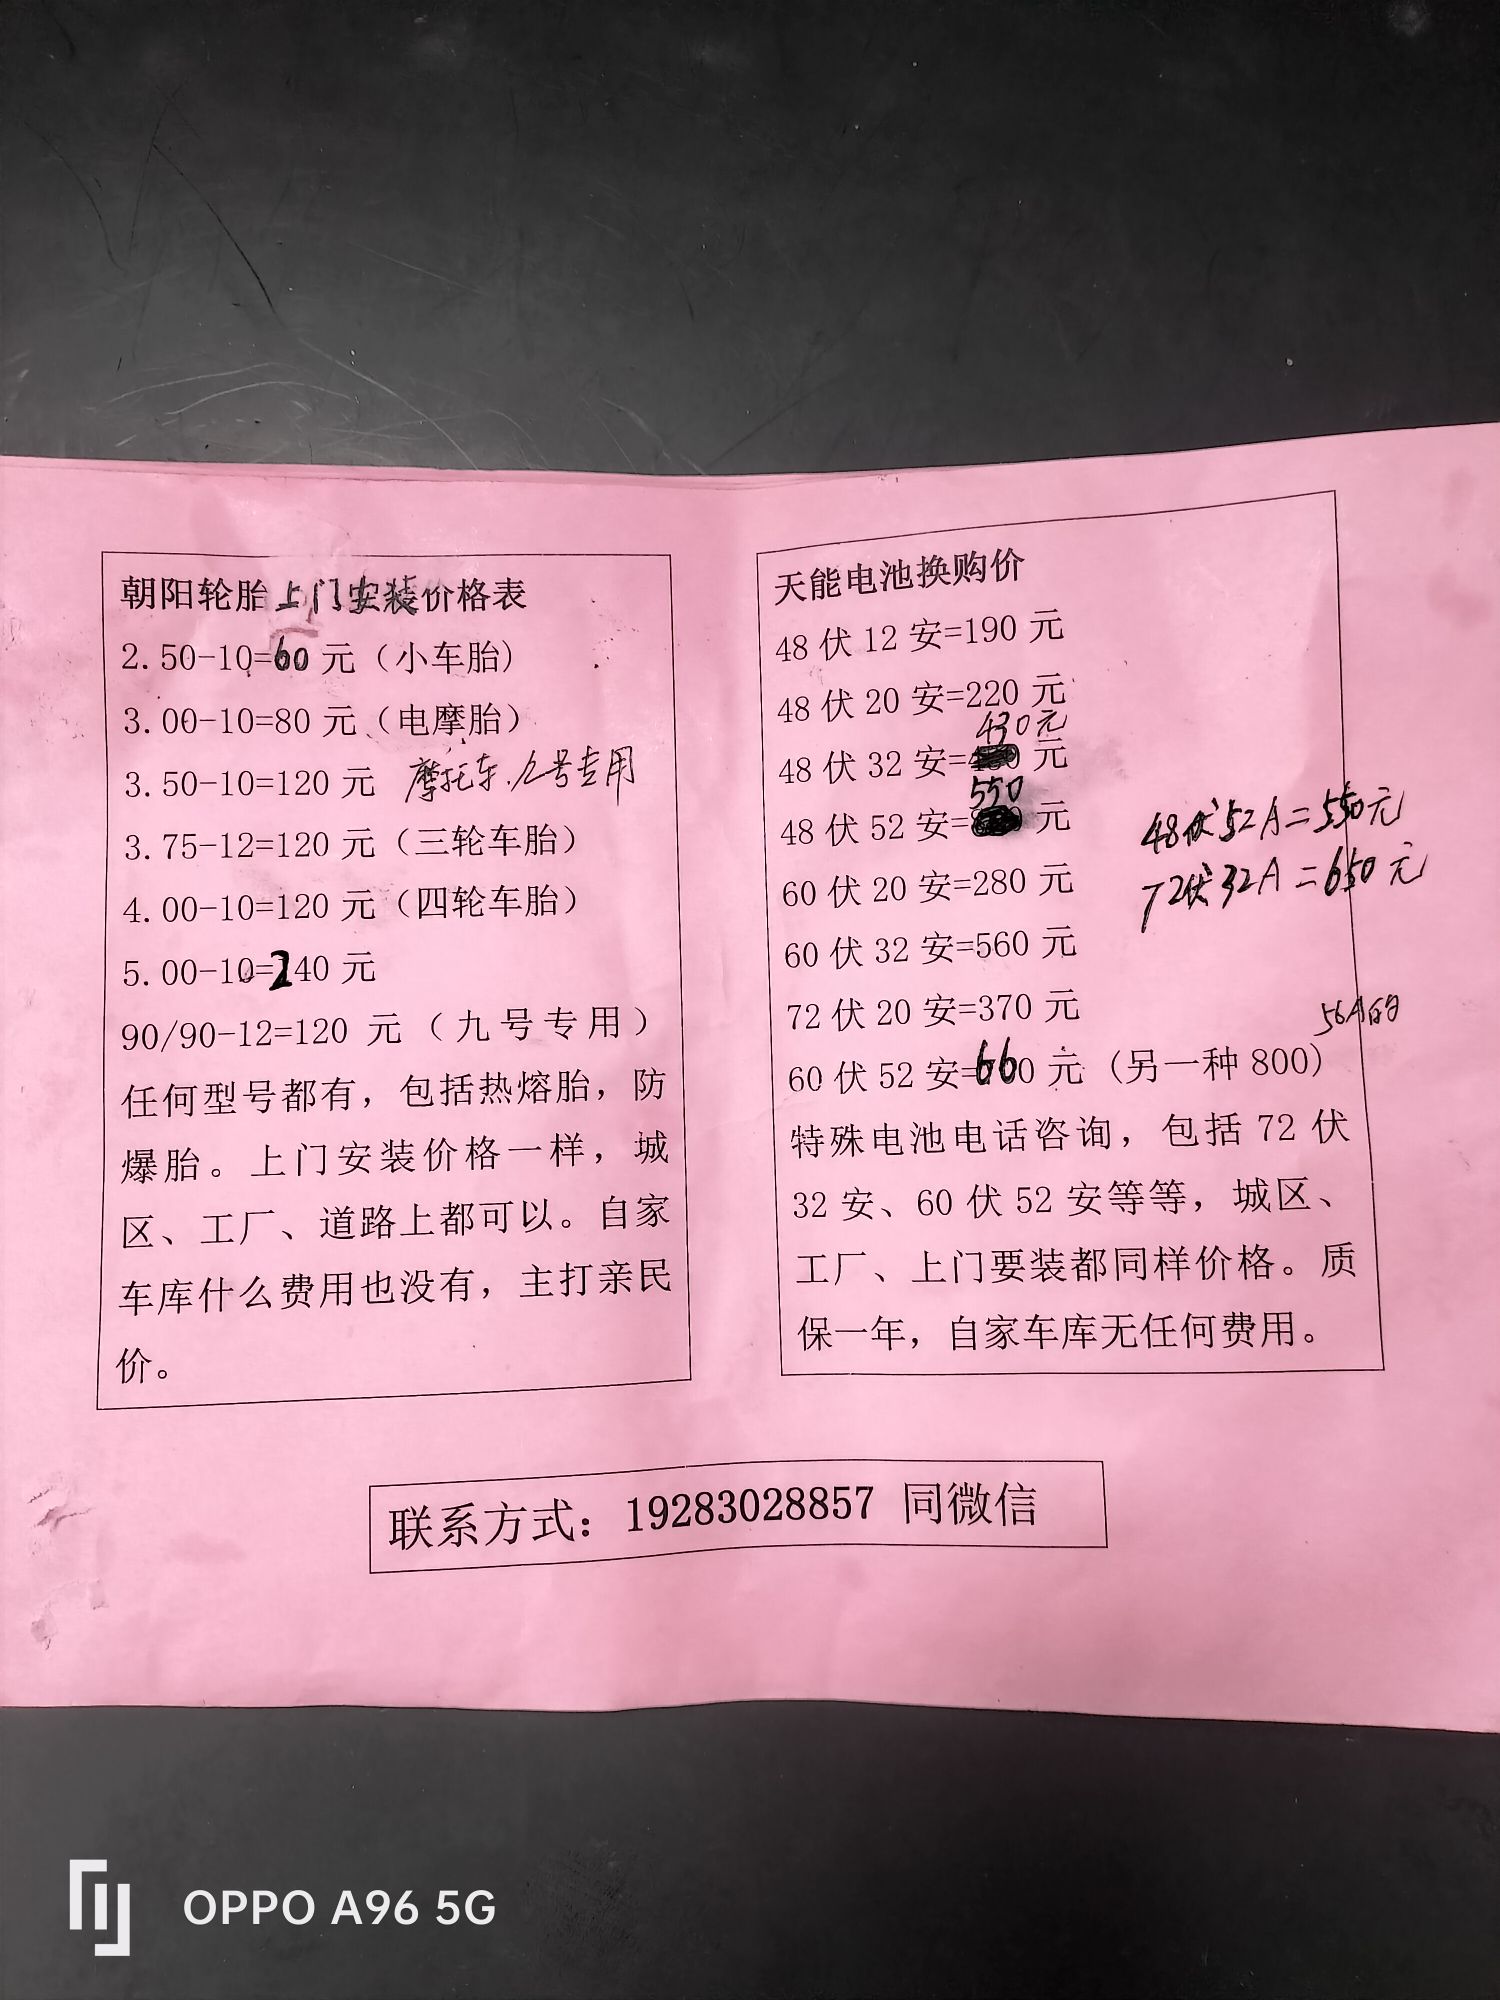 朝阳轮胎上门安装价格表
2.50-10=60元（小车胎）
3.00-10=80元（电摩胎）
3.50-10=120元 摩托车.九号专用
3.75-12=120元（三轮车胎）
4.00-10=120元（四轮车胎）
5.00-10=240元
90/90-12=120 元（九号专用）
任何型号都有，包括热熔胎，防
爆胎。上门安装价格一样，城
区、工厂、道路上都可以。自家
车库什么费用也没有，主打亲民
价。
天能电池换购价
48伏12安=190元
48伏20安=220元
430元
48伏32安=元
550
48伏52安=元
48伏52A=550元
72伏32A=650元
60伏20安=280元
60伏32安=560元
72伏20安=370元
56A的
60伏52安=660元（另一种800）
特殊电池电话咨询，包括72伏
32安、60伏52安等等，城区、
工厂、上门要装都同样价格。质
保一年，自家车库无任何费用。
联系方式：19283028857 同微信
OPPO A96 5G